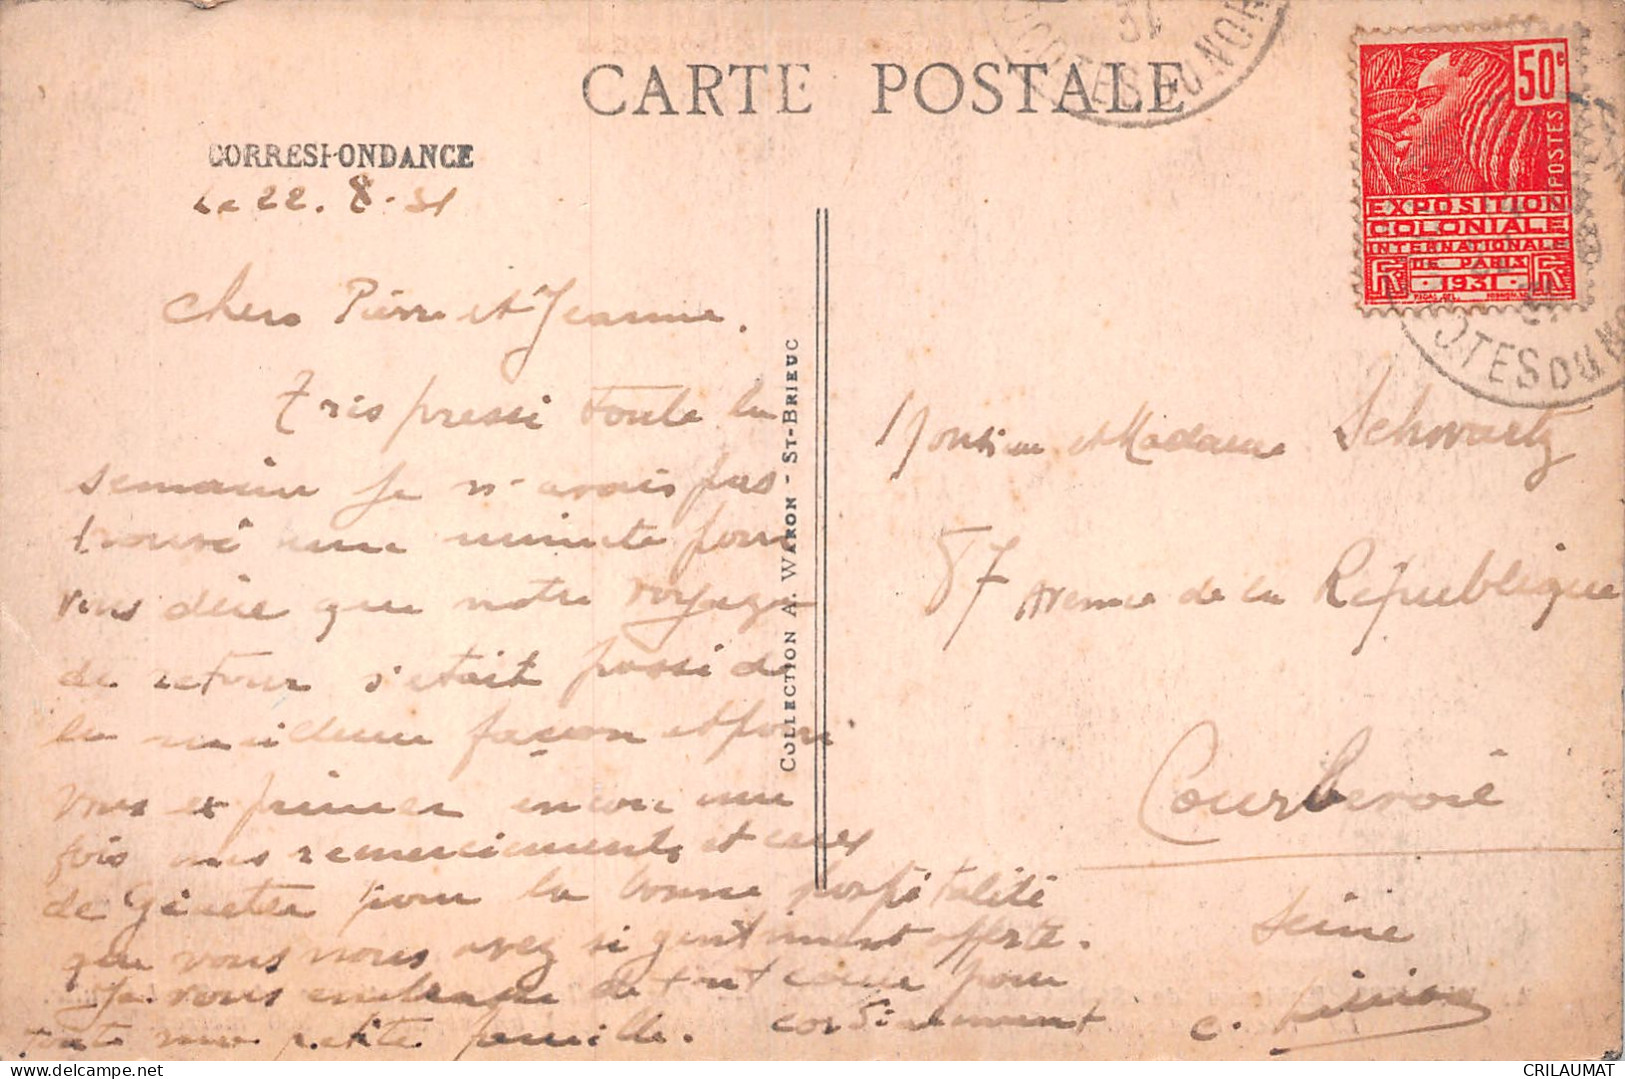 CARTE POSTALE
CORRESPONDANCE
Le 22. 8. 31
Chers Pierre et Jeanne.
Très pressé toute la
semaine je n'avais pas
trouvé une minute pour
vous dire que notre voyage
de retour s'était passé de
la meilleure façon et pour
vous exprimer encore une
fois mes remerciements et ceux
de Ginette pour la bonne hospitalité
que vous nous avez si gentiment offerte.
Je vous embrasse de tout cœur pour
toute ma petite famille. cordialement
C.
COLLECTION A. WARON - ST-BRIEUC
50c
POSTES
EXPOSITION
COLONIALE
INTERNATIONALE
DE PARIS
RF 1931 RF
COTES DU NORD
31
COTES DU NO
Monsieur et Madame Schwartz
57 Avenue de la République
Courbevoie
Seine
CRILAUMAT